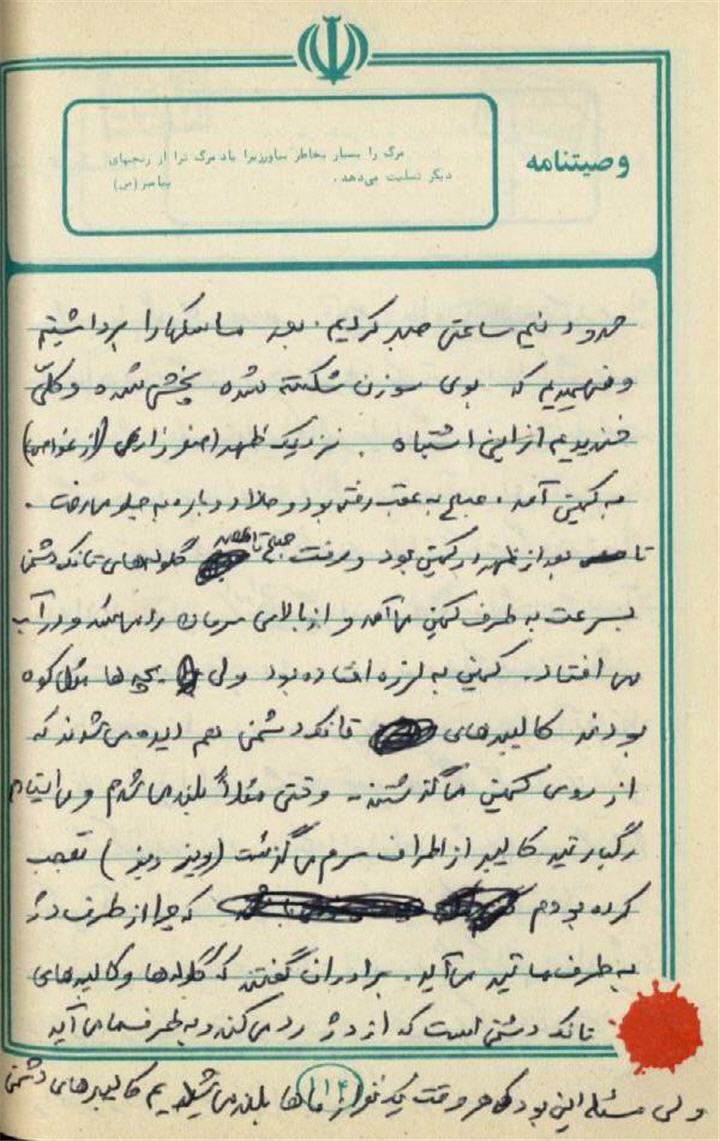 وصیتنامه
مرگ را بسیار بخاطر بیاور زیرا یاد مرگ ترا از رنجهای
دیگر تسلیت می‌دهد.
پیامبر (ص)
حدود نیم ساعتی صبر کردیم. بعد ماسکها را برداشتیم
و فهمیدیم که بوی سوزن شکسته شده پخش شده و کلی
خندیدیم از این اشتباه. نزدیک ظهر اصغر زارعی (از غواصی)
به کمین آمد. صبح به عقب رفته بود و حالا دوباره به جلو
تا بعد از ظهر در کمین بود و رفت صبح تا گلوله‌های تانک دشمن
بسرعت به طرف کمین می‌آمد و از بالای سرمان رد می‌شد و در آب
می افتاد. کمین به لرزه افتاده بود ولی بچه ها مثل کوه
بودند کالیبرهای تانک دشمن هم دیده می‌شوند که
از روی کمین ما گذشتند. وقتی مثلاً بلند می‌شدم و
رگبار تیر کالیبر از اطراف سرم می‌گذشت (ویز ویز) تعجب
کرده بودم که چرا از طرف دژ
به طرف ما تیر می‌آید. برادران گفتند که گلوله‌ها و کالیبرهای
تانک دشمن است که از دژ رد می‌کند و به طرف ما می‌آید
ولی مسئله این بود که هر وقت یک نفر از ماها بلند کالیبرهای دشمن
۱۱۴